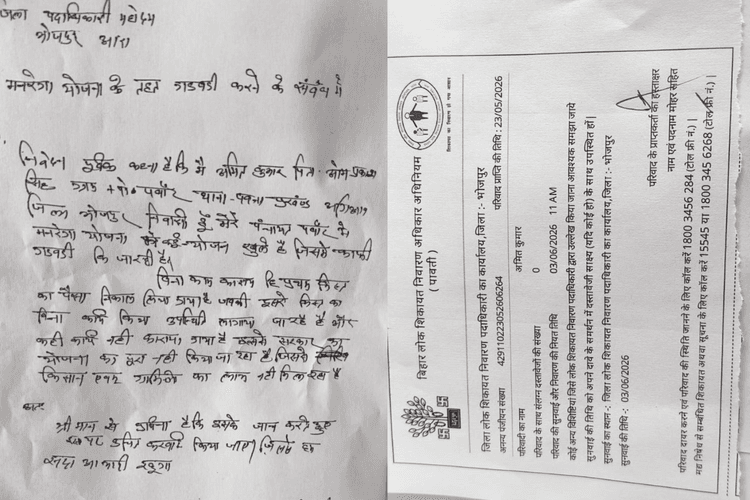 जिला पदाधिकारी महोदय
भोजपुर आरा
मनरेगा योजना के तहत गडबडी करने के संबंध में
निवेदन पूर्वक कहना है कि मैं अमित कुमार पिता ओम प्रकाश
सिंह ग्राम + पो० पवार थाना - पवना
जिला भोजपुर निवासी हूँ मेरे पंचायत पवार में
मनरेगा योजना योजना खुले है जिसमे काफी
गडबडी कि जा रही है।
बिना काम कराए हि प्रथम किस्त
का पैसा निकाल लिया गया है
बिना कार्य किया उपस्थिति लगाया जा रहे है और
कही कार्य नही कराया गया है इससे सरकार का
योजना का पूरा नही किया जा रहा है जिससे
किसान एवं का लाभ नही मिल रहा है
अतः
श्री मान से है कि इसके जाच करते हुए
उचित करवाई किया जाए जिसके हम
सदा आभारी रहूगा
बिहार लोक शिकायत निवारण अधिकार अधिनियम
( पावती )
जिला लोक शिकायत निवारण पदाधिकारी का कार्यालय,जिला :- भोजपुर
अनन्य पंजीयन संख्या 429110223052606264 परिवाद प्राप्ति की तिथि : 23/05/2026
परिवादी का नाम अमित कुमार
परिवाद के साथ संलग्न दस्तावेजों की संख्या 0
परिवाद की सुनवाई और निवारण की नियत तिथि 03/06/2026 11 AM
कोई अन्य विशिष्टियां जिसे लोक शिकायत निवारण पदाधिकारी द्वारा उल्लेख किया जाना आवश्यक समझा जाये
सुनवाई की तिथि को अपने दावे के समर्थन में दस्तावेजी साक्ष्य (यदि कोई हो) के साथ उपस्थित हों|
सुनवाई का स्थान -: जिला लोक शिकायत निवारण पदाधिकारी का कार्यालय,जिला :- भोजपुर
सुनवाई की तिथि -: 03/06/2026
परिवाद के प्राप्तकर्ता का हस्ताक्षर
नाम एवं पदनाम मोहर सहित
परिवाद दायर करने एवं परिवाद की स्थिति जानने के लिए कॉल करें 1800 3456 284 (टोल फ्री नं.) |
मद्य निषेध से सम्बन्धित शिकायत अथवा सूचना के लिए कॉल करें 15545 या 1800 345 6268 (टोल फ्री नं.) |